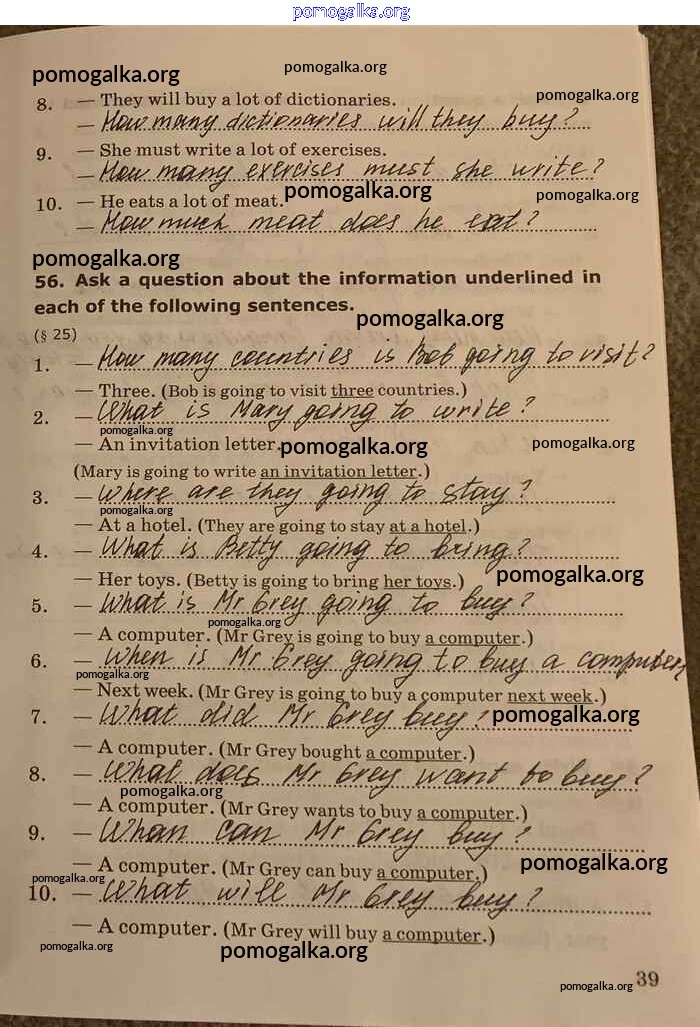 pomogalka.org
pomogalka.org
pomogalka.org
8. — They will buy a lot of dictionaries.
pomogalka.org
— How many dictionaries will they buy?
9. — She must write a lot of exercises.
— How many exercises must she write?
pomogalka.org
pomogalka.org
10. — He eats a lot of meat.
— How much meat does he eat?
pomogalka.org
56. Ask a question about the information underlined in
each of the following sentences.
pomogalka.org
(§ 25)
1. — How many countries is Bob going to visit?
— Three. (Bob is going to visit three countries.)
2. — What is Mary going to write?
pomogalka.org
— An invitation letter.
pomogalka.org
pomogalka.org
(Mary is going to write an invitation letter.)
3. — Where are they going to stay?
pomogalka.org
— At a hotel. (They are going to stay at a hotel.)
4. — What is Betty going to bring?
— Her toys. (Betty is going to bring her toys.)
pomogalka.org
5. — What is Mr Grey going to buy?
pomogalka.org
— A computer. (Mr Grey is going to buy a computer.)
6. — When is Mr Grey going to buy a computer?
pomogalka.org
— Next week. (Mr Grey is going to buy a computer next week.)
7. — What did Mr Grey buy?
pomogalka.org
— A computer. (Mr Grey bought a computer.)
8. — What does Mr Grey want to buy?
pomogalka.org
— A computer. (Mr Grey wants to buy a computer.)
9. — Whan can Mr Grey buy?
— A computer. (Mr Grey can buy a computer.)
pomogalka.org
pomogalka.org
10. — What will Mr Grey buy?
— A computer. (Mr Grey will buy a computer.)
pomogalka.org
pomogalka.org
39
pomogalka.org